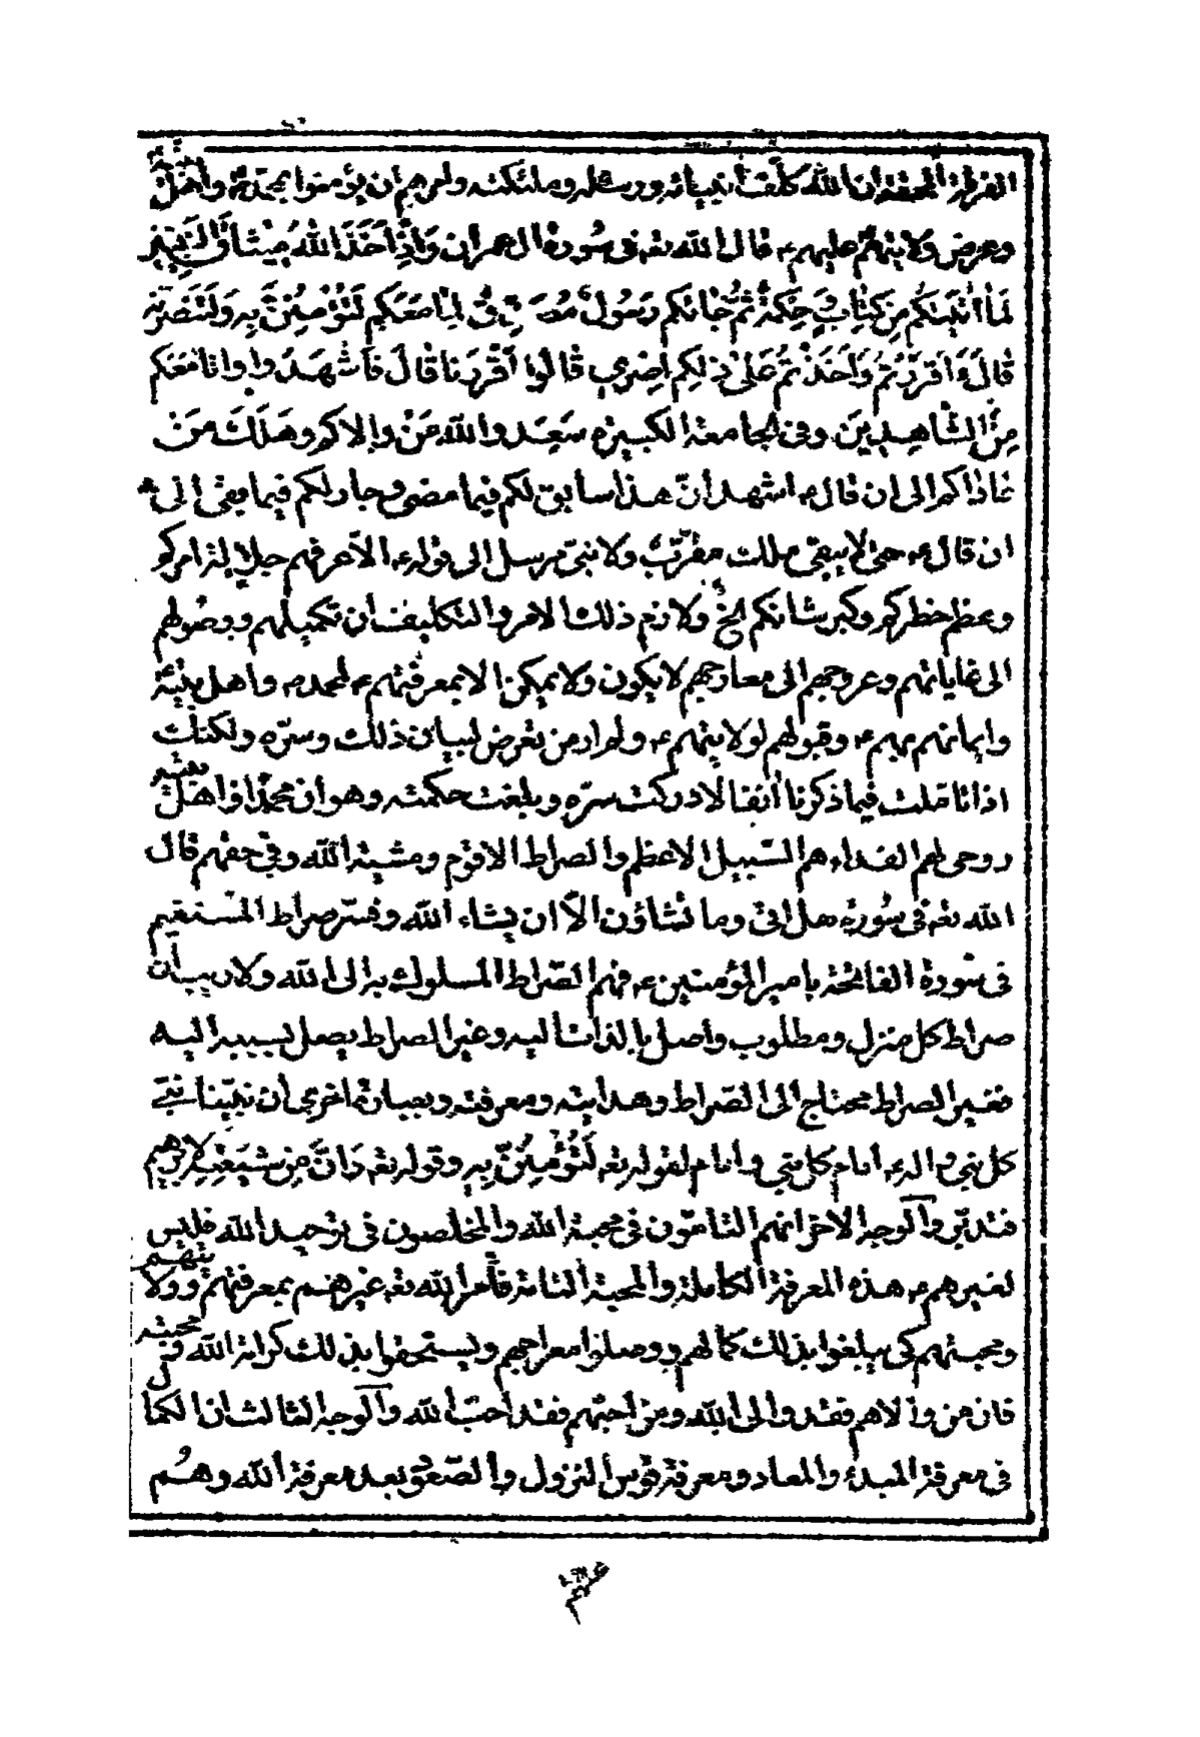 الفرقة المحقة ان الله كلّف انبيائه ورسله وملئكته وامرهم ان يؤمنوا بمحمد ص واهل بيته
وعرض ولايتهم عليهم ع قال الله تعه فى سورة ال عمران وَاِذْ اَخَذَ اللهُ مِيْثَاقَ النَّبِيّينَ
لَمَا اتَيْتُكُم مِن كِتَابٍ وَ حِكمَةٍ ثُمَّ جَائَكُم رَسُولٌ مُصَدِّقٌ لِمَا مَعَكُم لَتُؤْمِنُنَّ بِهِ وَلَتَنْصُرُنَّه
قَالَ ءَاَقرَرْتُم وَاَخَذْتُم عَلىٰ ذلِكُم اِصْرِي قَالوُا اَقْرَرنَا قَالَ فَاشْهَدُوا وانا مَعَكم
مِنَ الشّاهِدِينَ وفى الجامعة الكبيرة سَعِدَ والله مَنْ والاكم وهَلَكَ مَنْ
عاداكم الى ان قال ع اشهد انّ هذا سابق لكم فيما مضى وجار لكم فيما بقى الى
ان قال ع حتى لا يبقى ملك مقرّب ولا نبىّ مرسل الى قوله ع الّا عرفهم جلالة امركم
وعظم خطركم وكبر شانكم الخ ولازم ذلك الامر والتكليف ان تكميلهم ووصولهم
الى غاياتهم وعروجهم الى معارجهم لا يكون ولا يمكن الا بمعرفتهم ع لمحمد ص واهل بيته
وايمانهم بهم ع وقبولهم لولايتهم ع ولم ار من تعرض لبيان ذلك وسرّه ولكنك
اذا تاملت فيما ذكرنا انفا لادركت سرّه وبلغت حكمته وهو ان محمدا واهل بيته
روحى لهم الفداء هم السّبيل الاعظم والصراط الاقوم ومشية الله وفى حقهم قال
الله تعه فى سورة هل اتى وما تشاؤن الّا ان يشاء الله وفسّر صراط المستقيم
فى سورة الفاتحة بامير المؤمنين ع فهم الصّراط المسلوك به الى الله ولا ريب ان
صراط كل منزل ومطلوب واصل بالذات اليه وغير الصراط يصل بسببه اليه
فغير الصراط محتاج الى الصّراط وهدايته ومعرفته وبعبارة اخرى ان نبيّنا نبى
كل نبى واله ع امام كل نبى وامام لقوله تعه لَتُؤْمِنُنَّ بِهِ وقوله تعه وَاِنَّ مِن شيعَتِهِ لاِبرهيم
فتدبّر والوجه الاخر انهم التامّون فى محبة الله والمخلصون فى توحيد الله فليس
لغيرهم ع هذه المعرفة الكاملة والمحبة التامة فامر الله تعه غيرهم بمعرفتهم وولايتهم
ومحبتهم كى يبلغوا بذلك كمالهم ووصلوا معراجهم ويستحقوا بذلك كرامة الله ومحبته
فان من والاهم فقد والى الله ومن احبّهم فقد احبّ الله والوجه الثالث ان الكمال
فى معرفة المبدء والمعاد ومعرفة قوس النزول والصّعود بعد معرفة الله وهُم